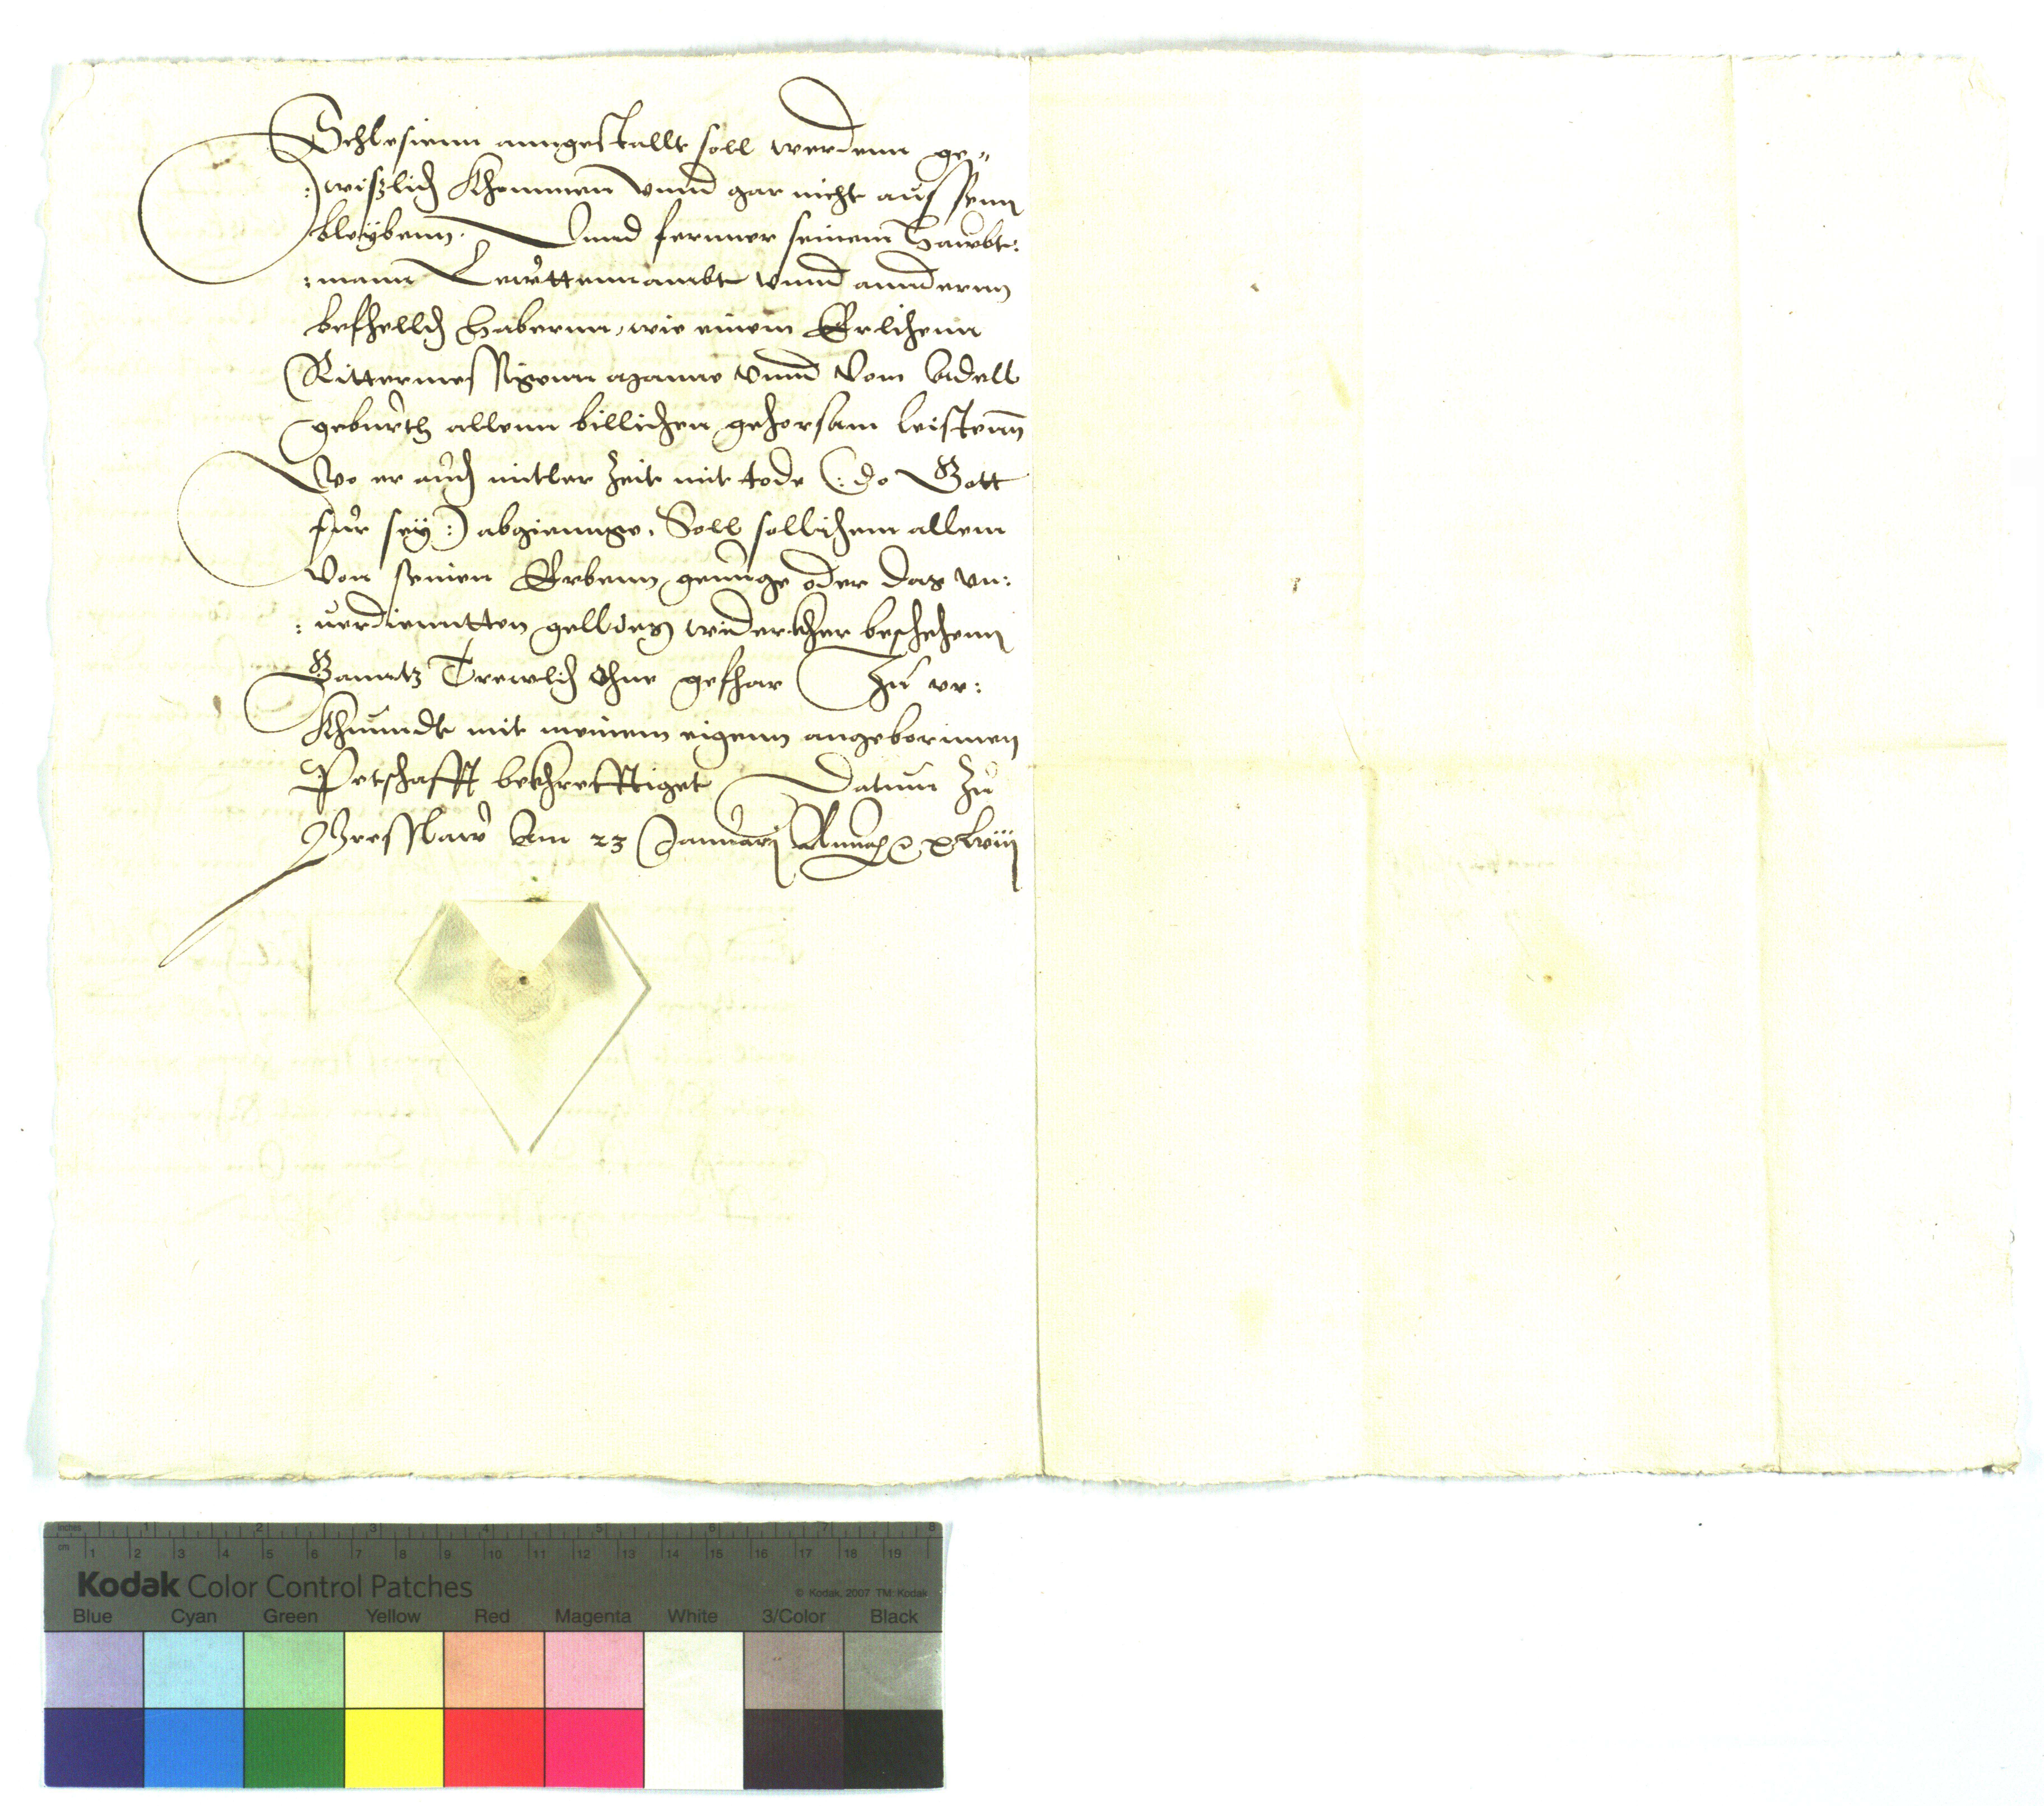 Schlesienn anngestallt soll werdenn ge„
:wißlich Khommen vnnd gar nicht aussenn
bleÿbenn. Vnnd fernner seinem Hawbt:
:mann Lewttennambt vnnd annderenn
befhellch Habernn, wie einem Erlichenn
Rittermessigenn manne vnnd vom Adell
geburth allenn billichen gehorsam leistenn
Wo er auch mitler Zeit mit tode (: do Gott
fur seÿ :) abgiennge. Soll sollichem allem
von seinen Erbenn genuge oder das vn:
:uerdienntten gelldes widerkher beschehenn
Ganntz Trewlich Ohne gefhar Zu vr:
Khunndt mit meinem eigenn angebornnen
Petschafft bekhrefftiget Datum Zu
Bresslaw Am 23 Januarij Anno xLviij
Inches 1 2 3 4 5 6 7 8
cm 1 2 3 4 5 6 7 8 9 10 11 12 13 14 15 16 17 18 19
Kodak Color Control Patches
© Kodak, 2007 TM: Kodak
Blue Cyan Green Yellow Red Magenta White 3/Color Black